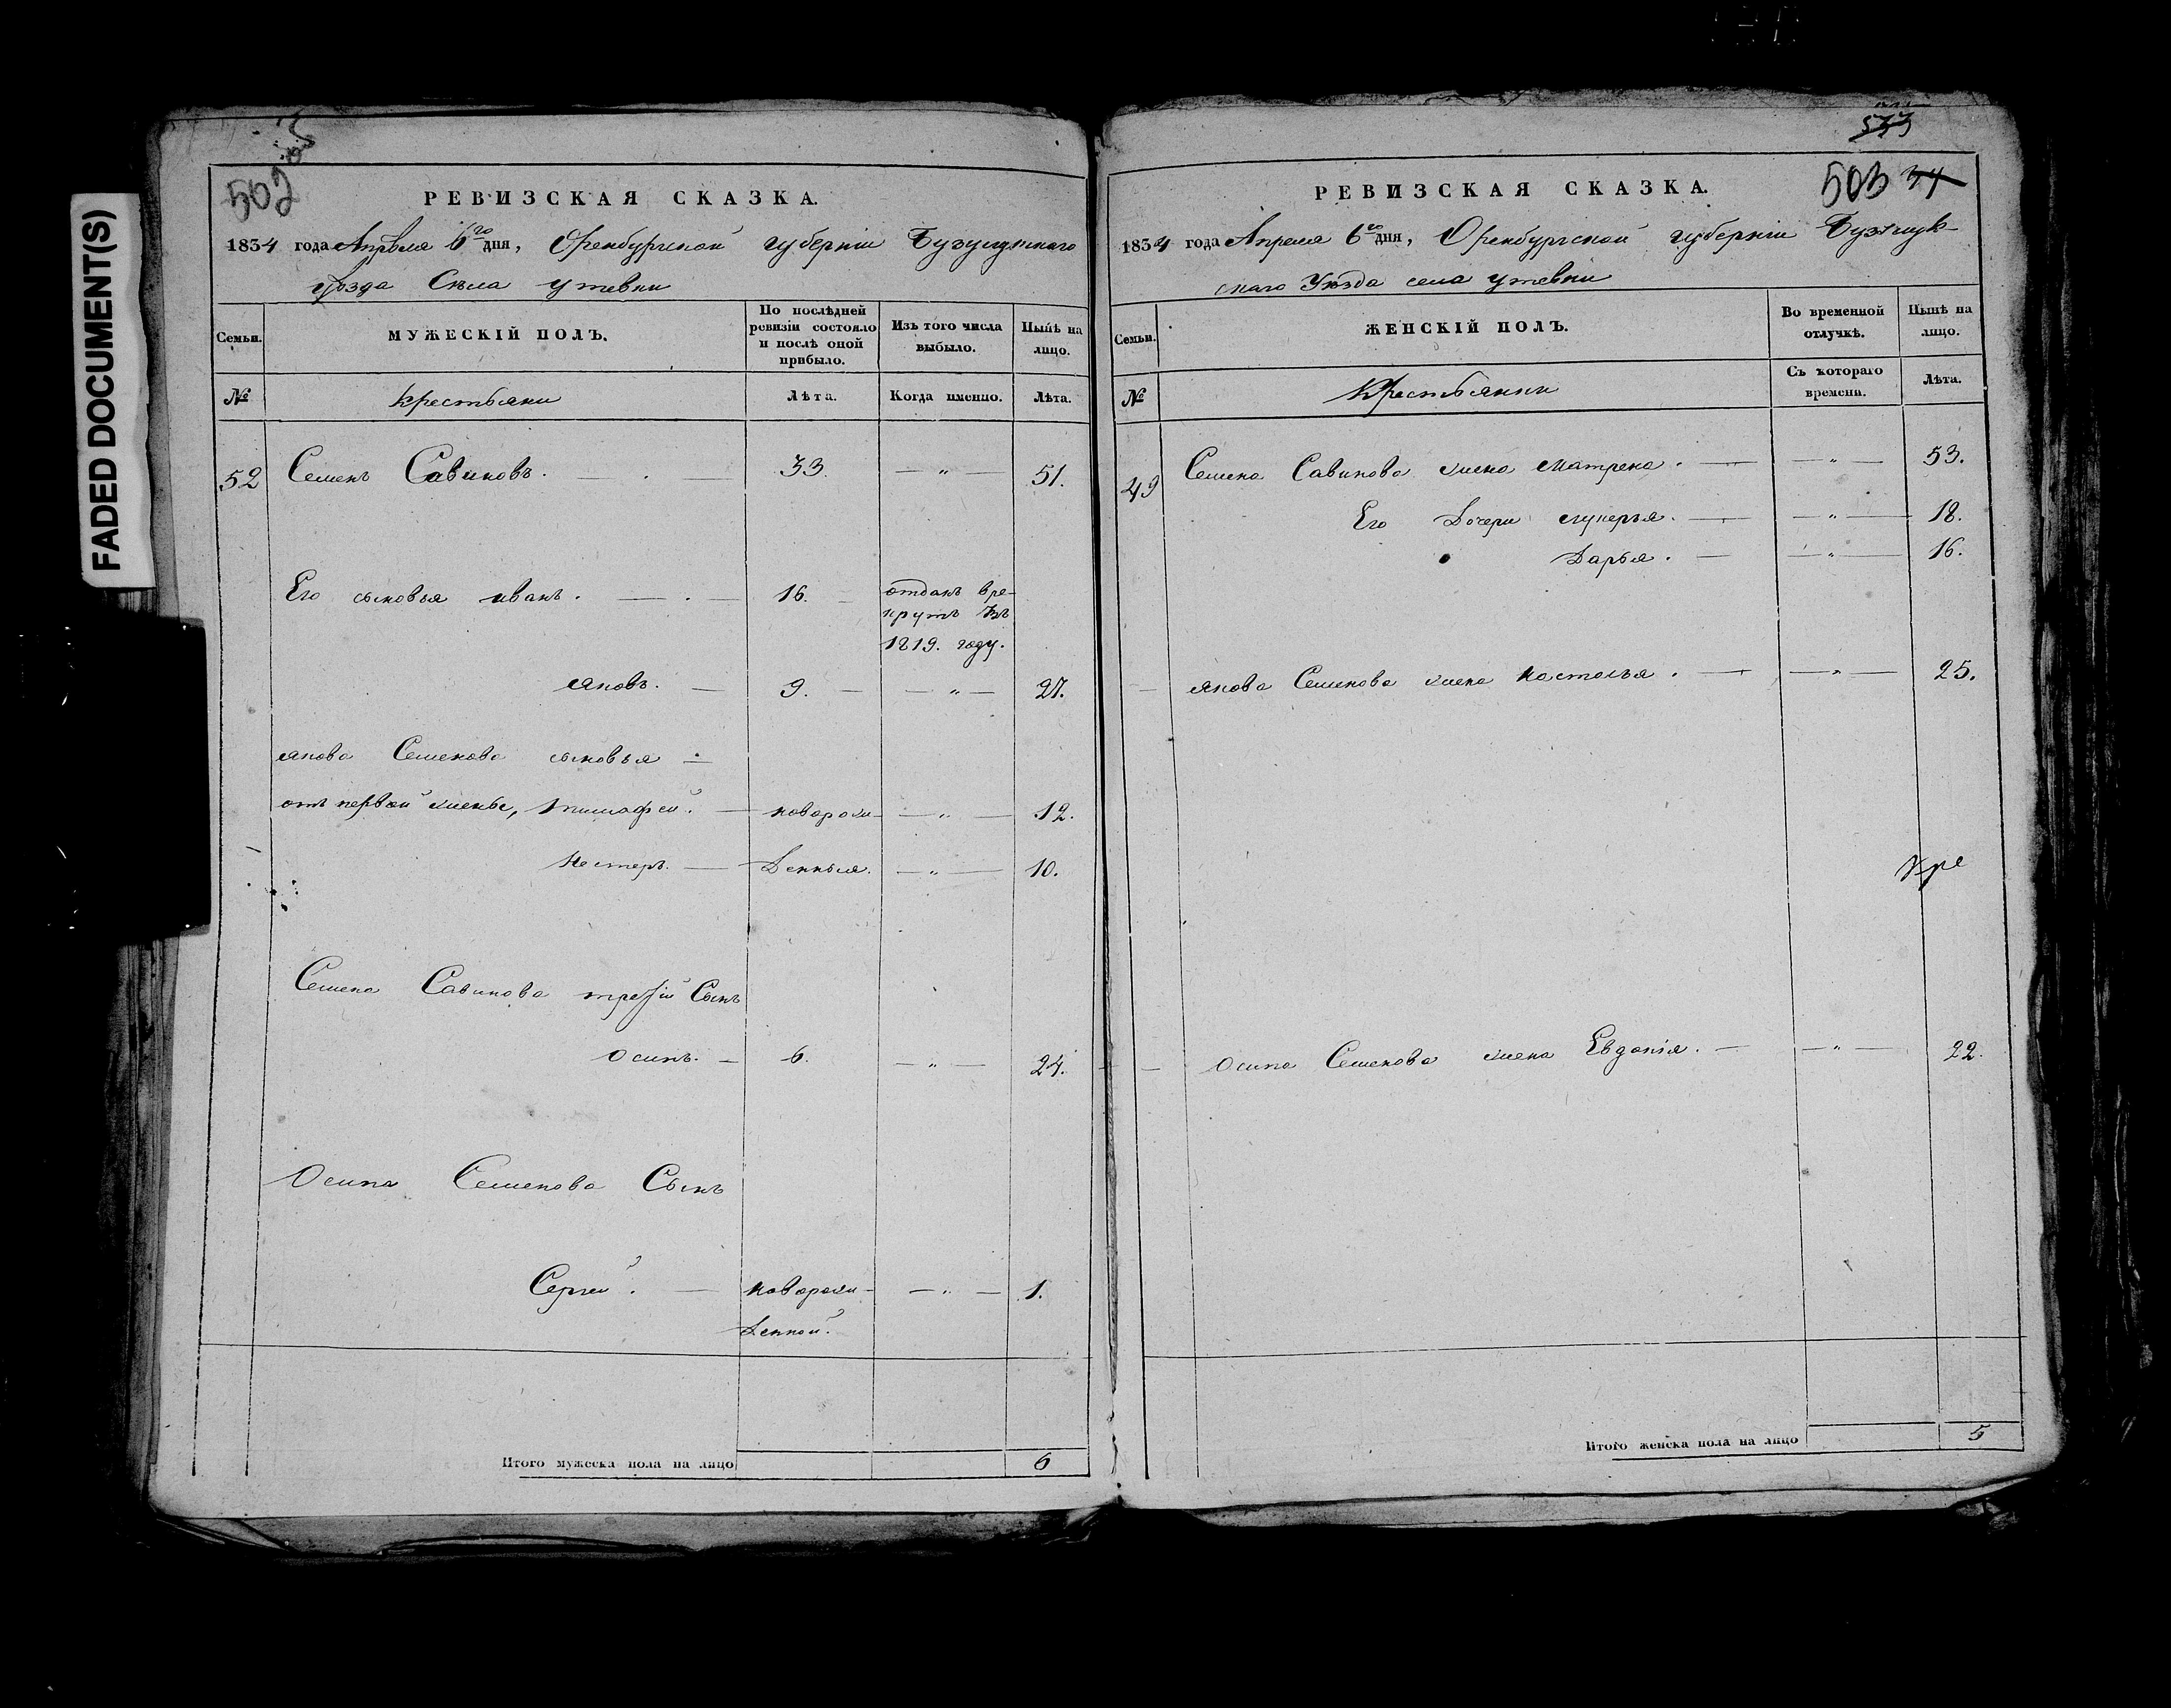 FADED DOCUMENT(S)
502
РЕВИЗСКАЯ СКАЗКА.
1834 года Апреля 6го дня, Оренбургской губерніи Бузулукскаго
уѣзда Села утевки
Семьи.
МУЖЕСКІЙ ПОЛЪ.
По послѣдней ревизіи состояло и послѣ оной прибыло.
Изъ того числа выбыло.
Нынѣ на лицо.
№
крестьяни
Лѣта.
Когда именно.
Лѣта.
52 Семенъ Савиновъ. 33. — „ — 51.
Его сыновья иванъ. 16. отданъ вре-
крутъ въ
1819. году.
яковъ. 9. — „ — 27.
якова Семенова сыновья
отъ первой жены, тимофей. новорож- — „ — 12.
нестеръ. денныя. — „ — 10.
Семена Савинова третіи Сынъ
осипъ. 6. — „ — 24.
Осипа Семенова Сынъ
Сергеи. новорож- — „ — 1.
денной.
Итого мужеска пола на лицо 6
503 34
РЕВИЗСКАЯ СКАЗКА.
1834 года Апреля 6го дня, Оренбургской губерніи Бузулук-
скаго Уѣзда села утевки
Семьи.
ЖЕНСКІЙ ПОЛЪ.
Во временной отлучкѣ.
Нынѣ на лицо.
№
крестьянки
Съ котораго времени.
Лѣта.
49 Семена Савинова жена матрена. — „ — 53.
Его дочери лукерья. — „ — 18.
дарья. — „ — 16.
якова Семенова жена настасья. — „ — 25.
Осипа Семенова жена Евдокія. — „ — 22.
Итого женска пола на лицо 5